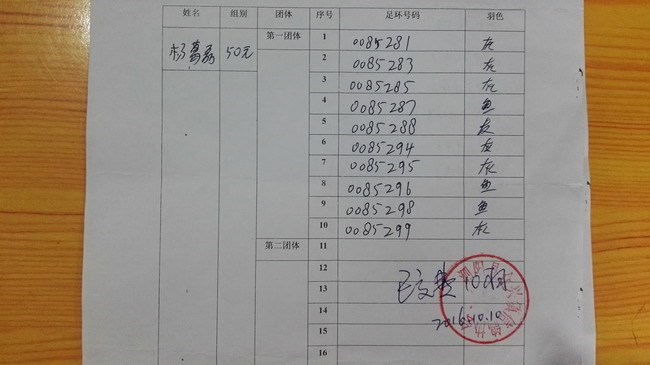 姓名 组别 团体 序号 足环号码 羽色
50元 第一团体 1 0085281 灰
2 0085283 灰
3 0085285 灰
4 0085287
5 0085288 灰
6 0085294 灰
7 0085295 灰
8 0085296
9 0085298
10 0085299 灰
第二团体 11
12
已交费 10羽
13
2016.10.10
14
15
16